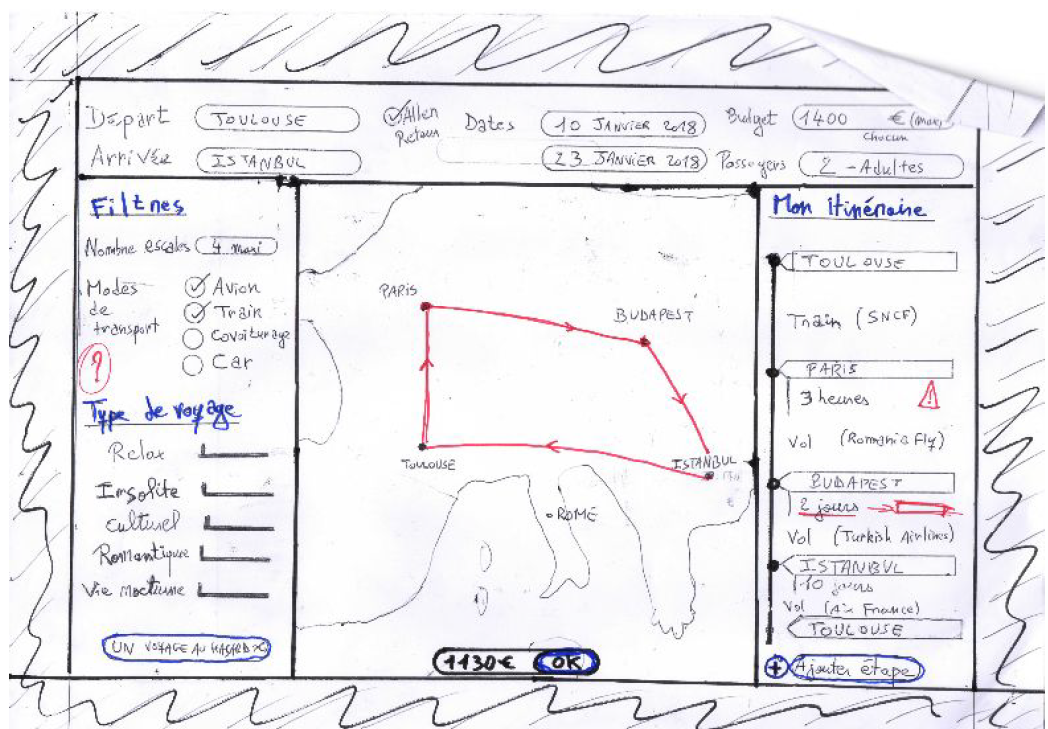 Départ
TOULOUSE
Aller
Retour
Dates
10 JANVIER 2018
Budget
1400 € (maxi)
chacun
Arrivée
ISTANBUL
23 JANVIER 2018
Passagers
2 - Adultes
Filtres
Nombre escales
4 maxi
Modes
de
transport
Avion
Train
Covoiturage
Car
?
Type de voyage
Relax
Insolite
Culturel
Romantique
Vie nocturne
UN VOYAGE AU HASARD
PARIS
BUDAPEST
TOULOUSE
ISTANBUL
ROME
1130€
OK
Mon itinéraire
TOULOUSE
Train (SNCF)
PARIS
3 heures
!
Vol (Romania Fly)
BUDAPEST
2 jours
Vol (Turkish Airlines)
ISTANBUL
10 jours
Vol (Air France)
TOULOUSE
+ Ajouter étape